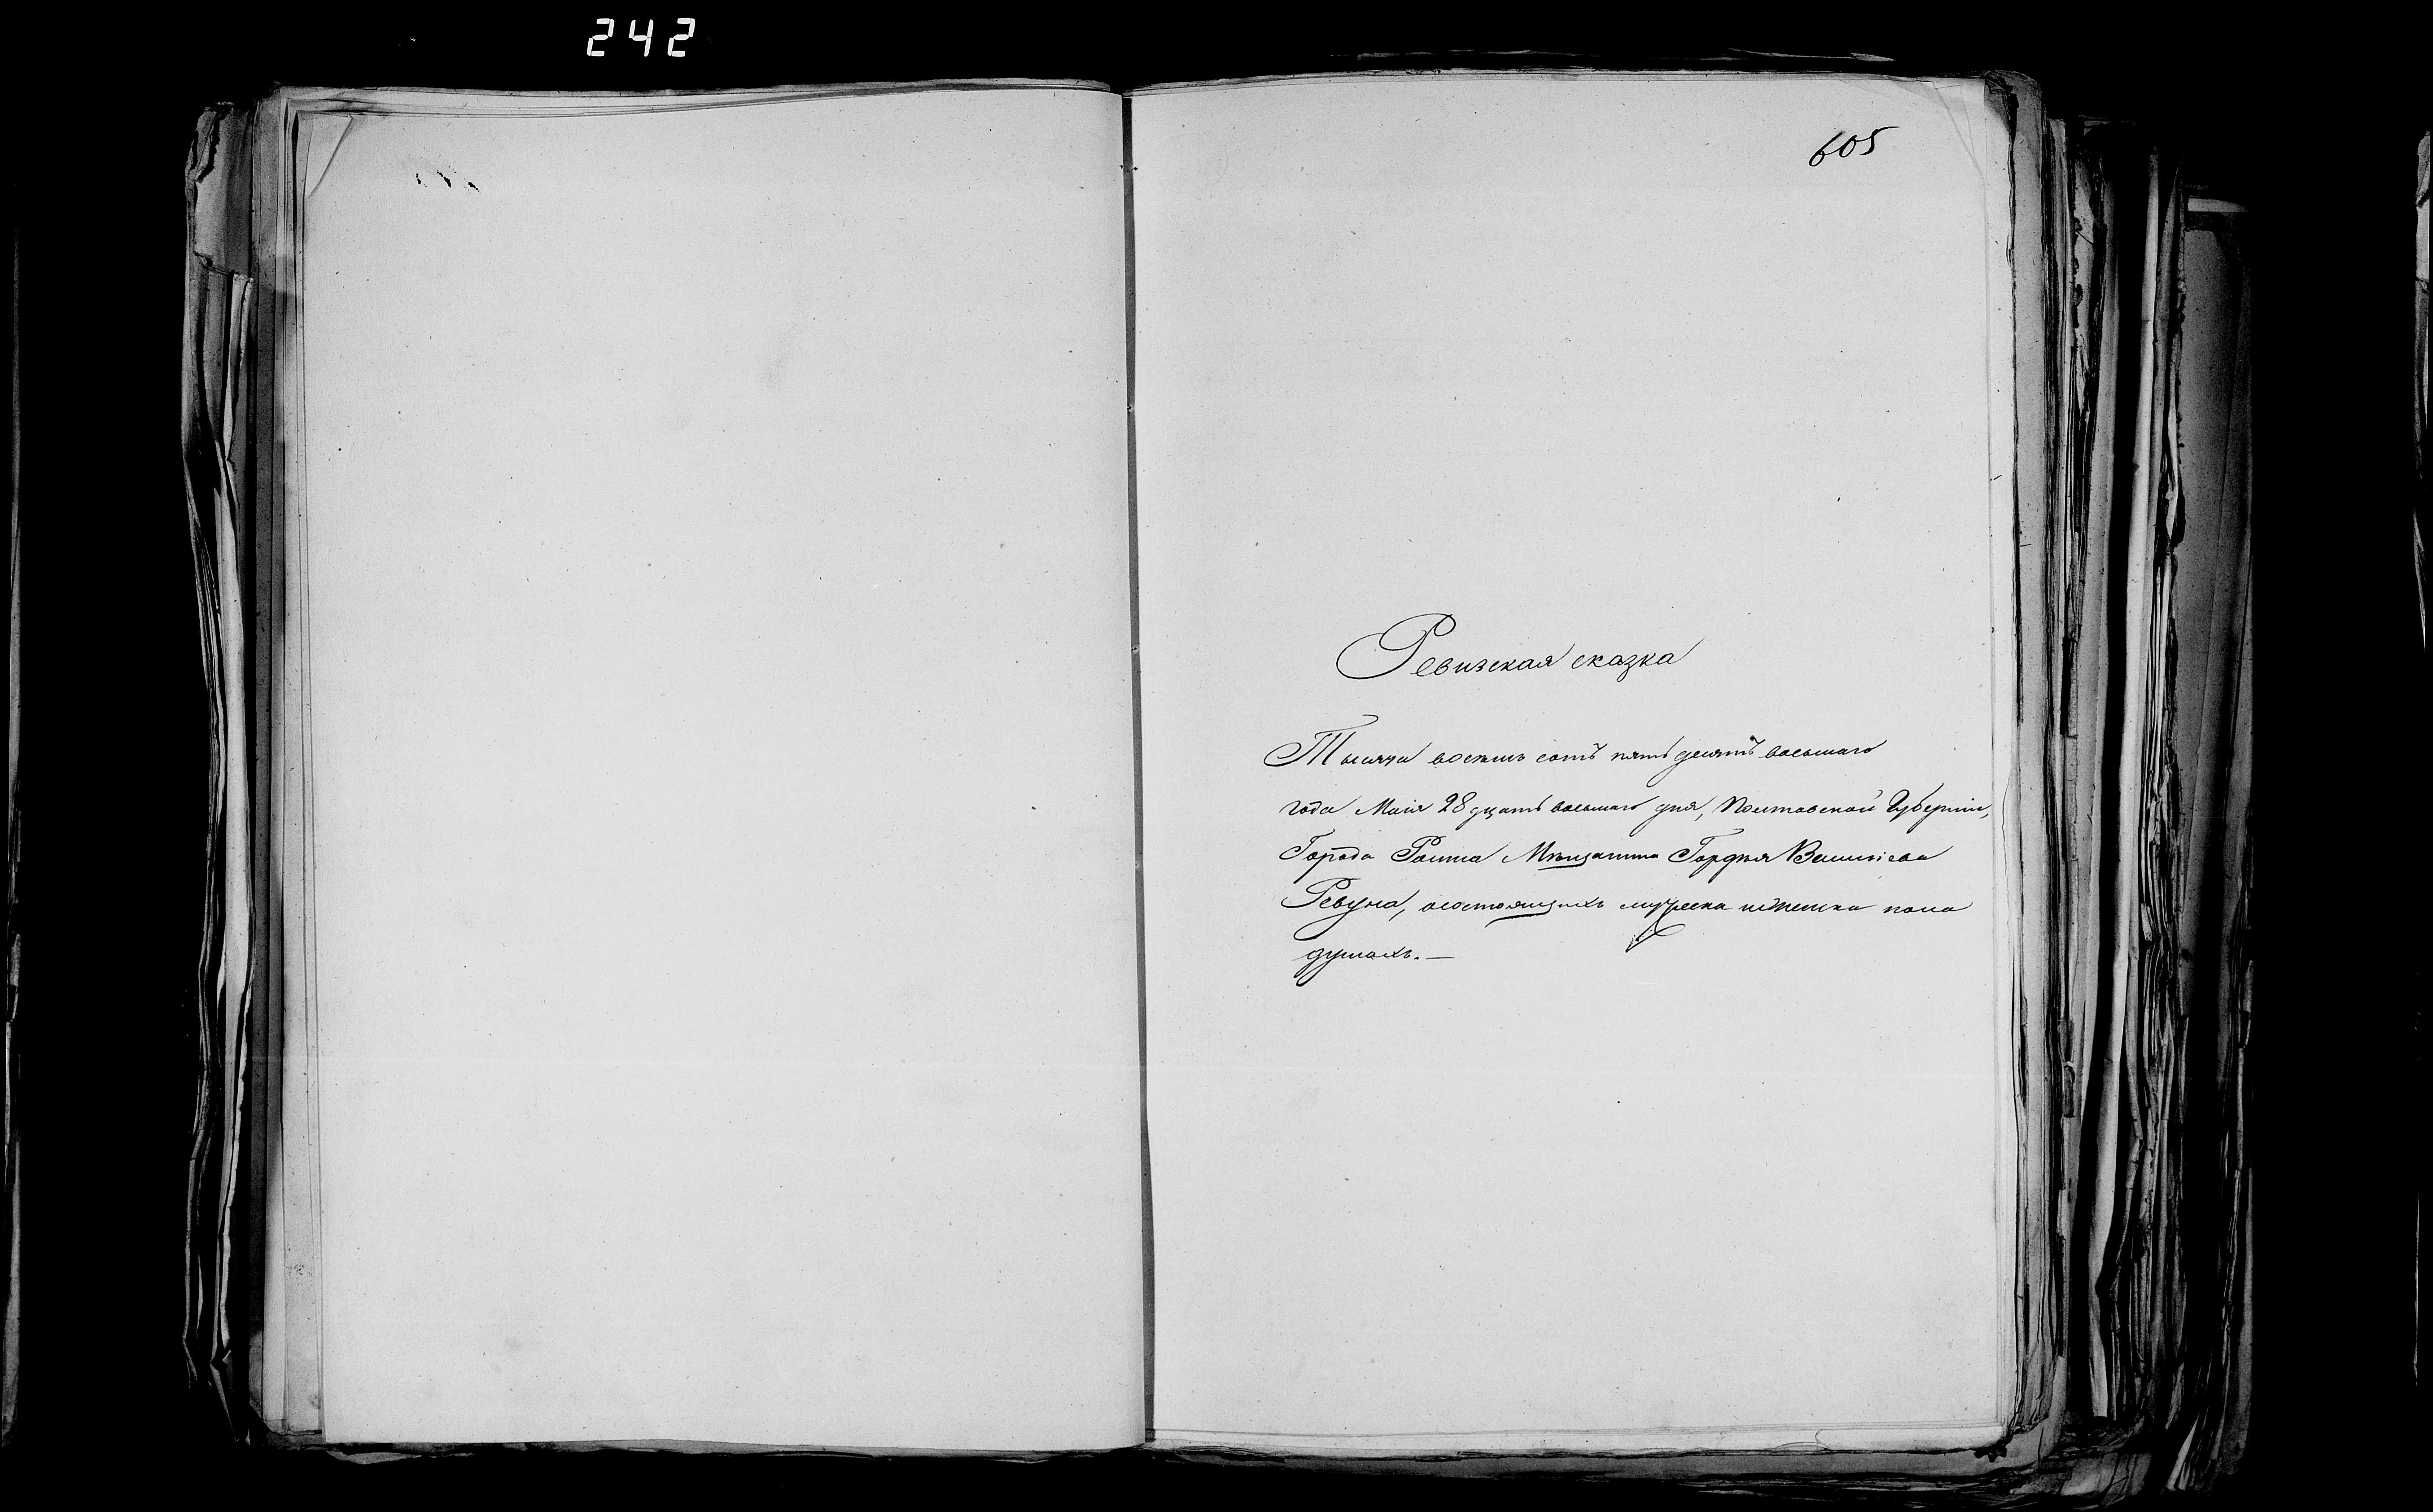 242
605
Ревизская сказка
Тысяча восемь сотъ пять десятъ восьмаго
года Маія 28 дцать восьмаго дня, Полтавской Губерніи,
Города Ромна Мѣщанина Гордѣя
Ревуна, осостоящихъ мужеска иженска пола
душахъ.—